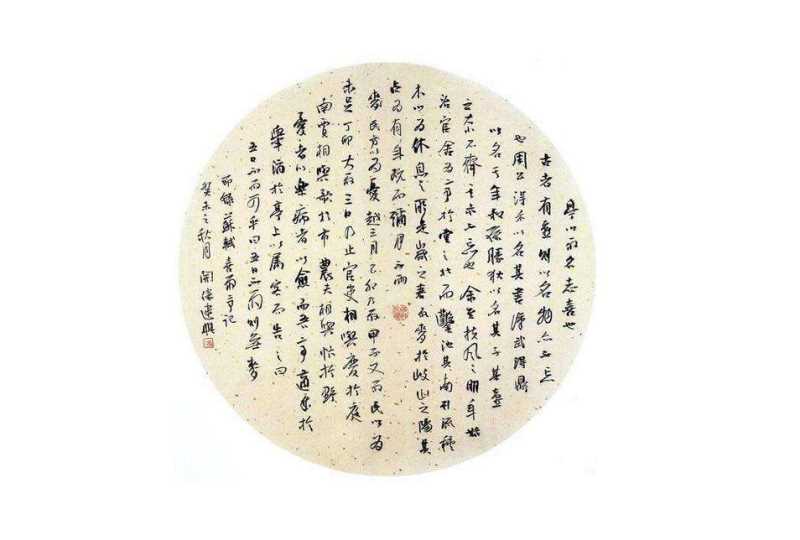 亭以雨名志喜也
古者有喜則以名物示不忘
也周公得禾以名其書漢武得鼎
以名其年叔孫勝狄以名其子其喜
之大小不齊其示不忘一也余至扶風之明年始
治官舍為亭於堂之北而鑿池其南引流種
木以為休息之所是歲之春雨麥於岐山之陽其
占為有年既而彌月不雨
民方以為憂越三月乙卯乃雨甲子又雨民以為
未足丁卯大雨三日乃止官吏相與慶於庭
商賈相與歌於市農夫相與忭於野
憂者以樂病者以愈而吾亭適成於
舉酒於亭上以属客而告之曰
五日不雨可乎曰五日不雨則無麥
節錄蘇軾喜雨亭記
癸未之秋月